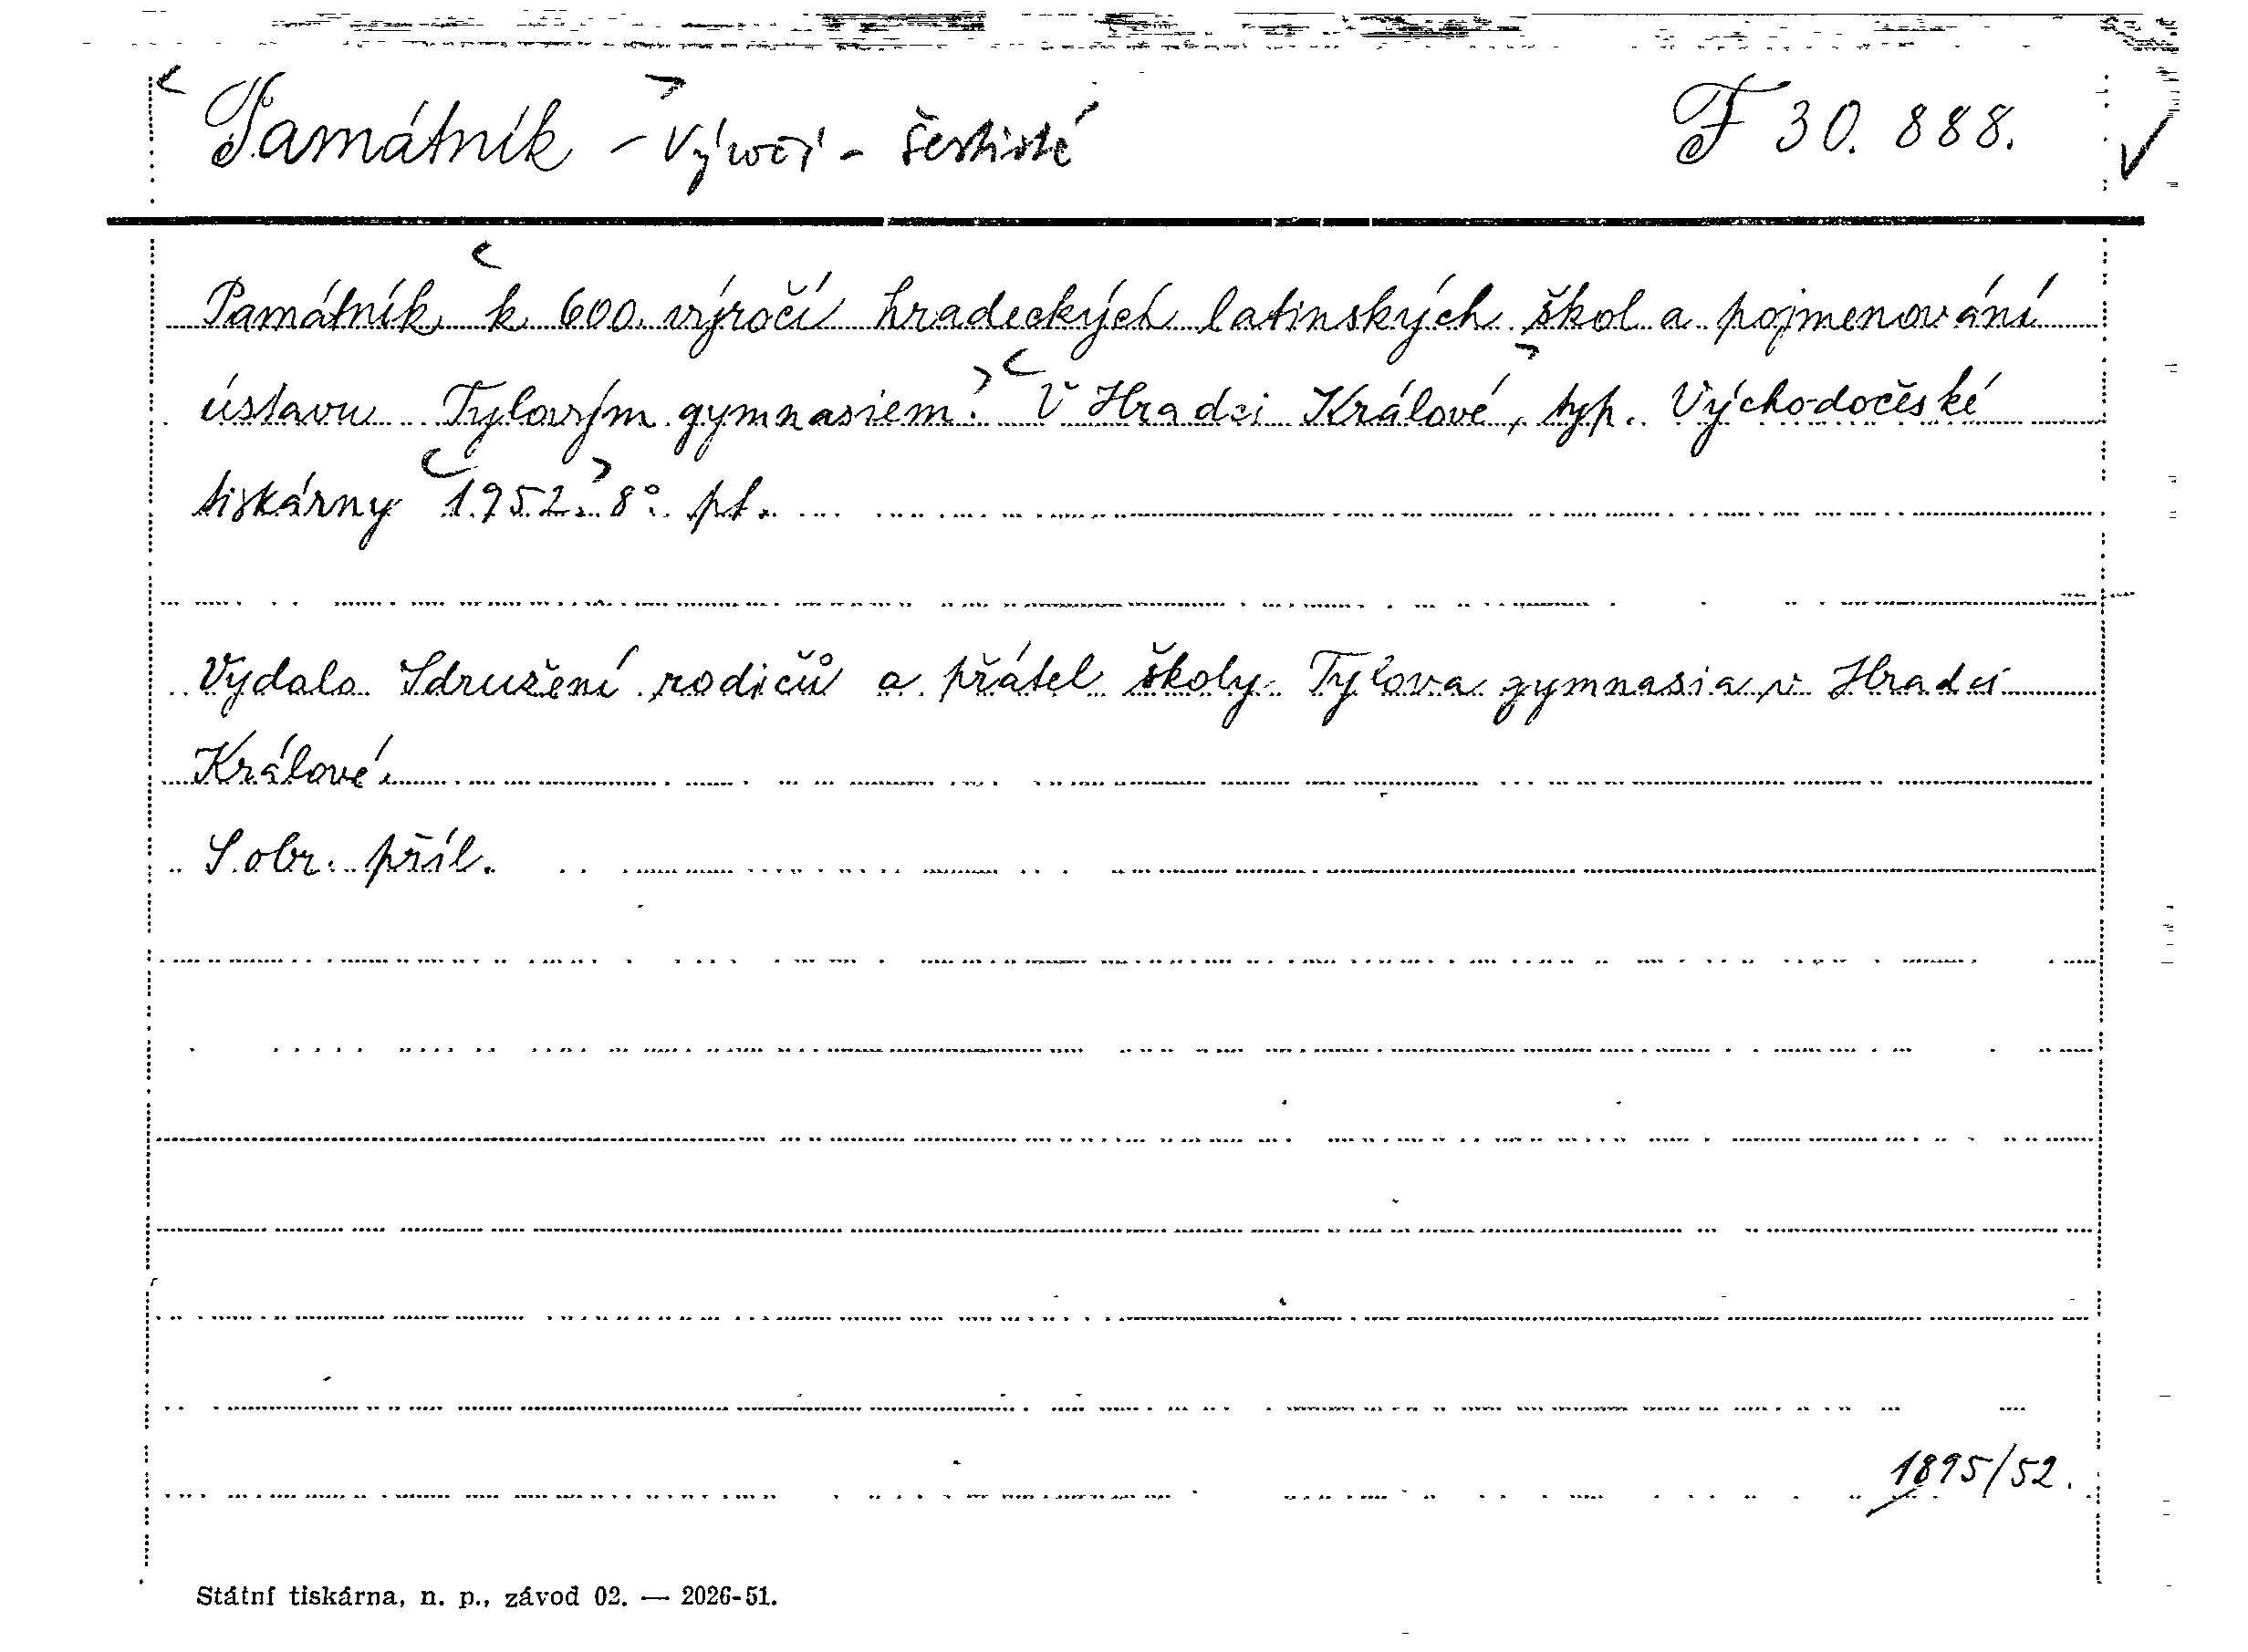 Památník - Výročí - šestisté F 30. 888.
Památník k 600. výročí hradeckých latinských škol a pojmenování
ústavu Tylovým gymnasiem. V Hradci Králové, typ. Východočeské
tiskárny 1952. 8°. pt.
Vydalo Sdružení rodičů a přátel školy Tylova gymnasia v Hradci
Králové.
S obr. příl.
1895/52.
Státní tiskárna, n. p., závod 02. — 2026-51.